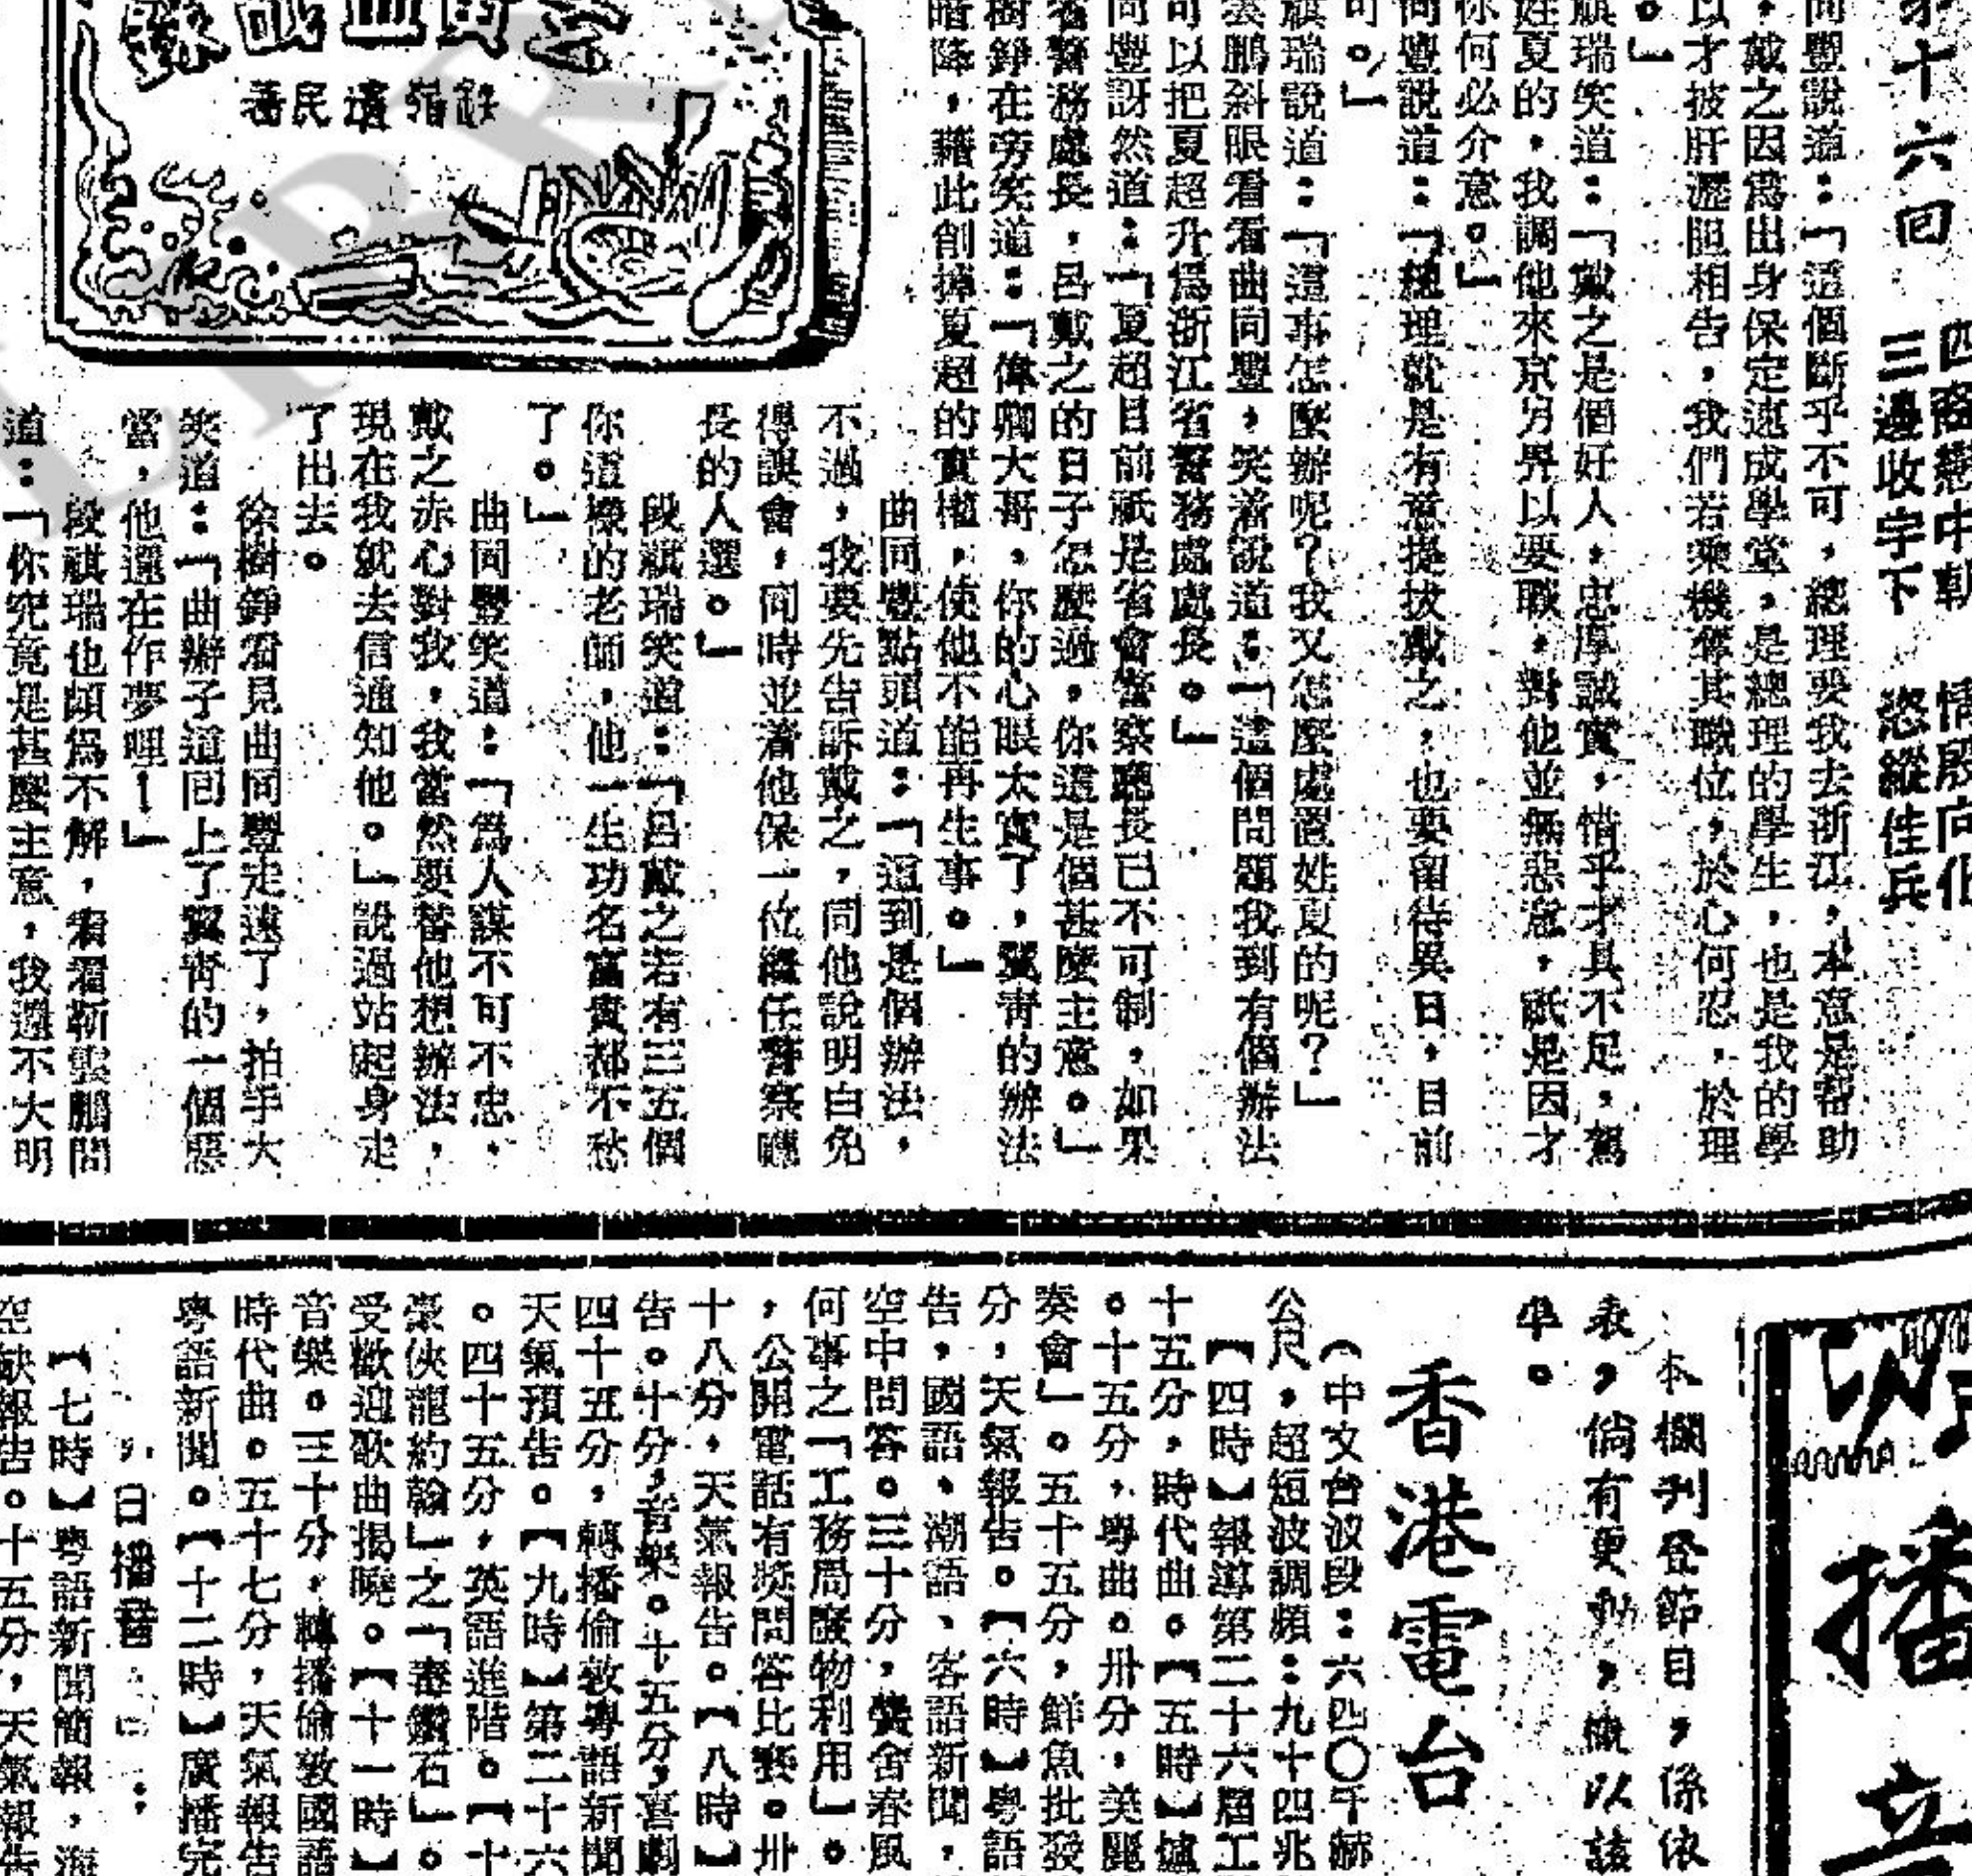 十六回
四裔戀中朝　情殷向化
三邊收宇下　恣縱佳兵
同豐說道：「這個斷乎不可，總理要我去浙江，本意是帮助
，戴之因爲出身保定速成學堂，是總理的學生，也是我的學
以才披肝瀝胆相告，我們若乘機奪其職位，於心何忍，於理
。」
祺瑞笑道：「戴之是個好人，忠厚誠實，惜乎才具不足，駕
姓夏的，我調他來京另畀以要職，對他並無惡意，祇是因才
你何必介意。」
同豐說道：「總理就是有意提拔戴之，也要留待異日，目前
可。」
祺瑞說道：「這事怎麼辦呢？我又怎麼處置姓夏的呢？」
雲鵬斜眼看看曲同豐，笑着說道：「這個問題我到有個辦法
可以把夏超升爲浙江省警務處處長。」
同豐訝然道：「夏超目前祇是省會警察廳長已不可制，如果
省警務處長，呂戴之的日子怎麼過，你這是個甚麼主意。」
樹錚在旁笑道：「偉卿大哥，你的心眼太實了，翼青的辦法
暗降，藉此削掉夏超的實權，使他不能再生事。」
曲同豐點頭道：「這到是個辦法，
不過，我要先告訴戴之，同他說明白免
得誤會，同時並着他保一位繼任警察廳
長的人選。」
段祺瑞笑道：「呂戴之若有三五個
你這樣的老師，他一生功名富貴都不愁
了。」
曲同豐笑道：「爲人謀不可不忠，
戴之赤心對我，我當然要替他想辦法，
現在我就去信通知他。」說過站起身走
了出去。
徐樹錚看見曲同豐走遠了，拍手大
笑道：「曲辮子這回上了翼青的一個惡
當，他還在作夢哩！」
段祺瑞也頗爲不解，看看靳雲鵬問
道：「你究竟是甚麼主意，我還不大明
血
著民遺嶺
播音
本欄刊登節目，係依
表，倘有更動，概以該
準。
香港電台
（中文台波段：六四〇千赫
公尺，超短波調頻：九十四兆
【四時】報導第二十六屆工
十五分，時代曲。【五時】爐
。十五分，粵曲。卅分，美麗
奏會」。五十五分，鮮魚批發
分，天氣報告。【六時】粵語
告，國語、潮語、客語新聞，
空中問答。三十分，黌舍春風
何事之「工務局廢物利用」。
，公開電話有獎問答比賽。卅
十八分，天氣報告。【八時】
告。十分，音樂。十五分，喜劇
四十五分，轉播倫敦粵語新聞
天氣預告。【九時】第二十六
。四十五分，英語進階。【十
豪俠龍約翰」之「毒鑽石」。
受歡迎歌曲揭曉。【十一時】
音樂。三十分，轉播倫敦國語
時代曲。五十七分，天氣報告
粵語新聞。【十二時】廣播完
日播音
【七時】粵語新聞簡報，海
空缺報告。十五分，天氣報告